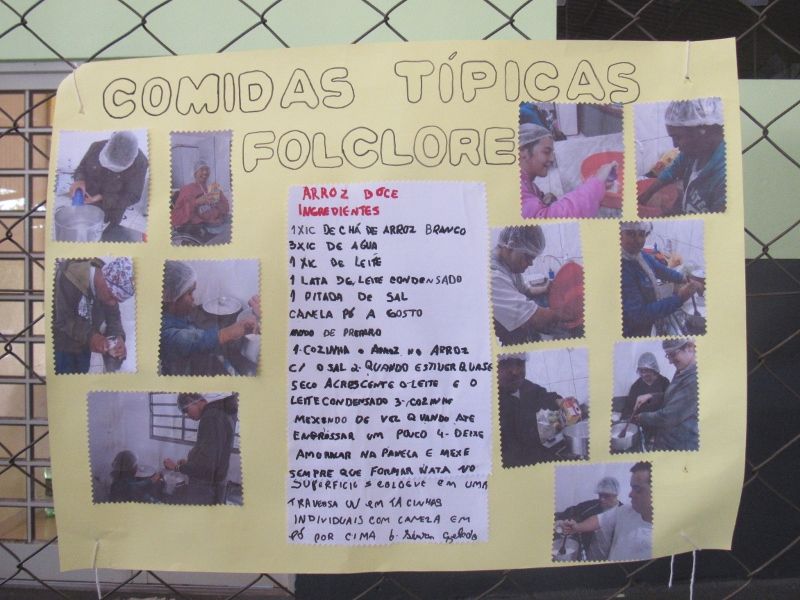 COMIDAS TÍPICAS
FOLCLORE
ARROZ DOCE
INGREDIENTES
1 XIC DE CHÁ DE ARROZ BRANCO
3 XIC DE AGUA
1 XIC DE LEITE
1 LATA DE LEITE CONDENSADO
1 PITADA DE SAL
CANELA PÓ A GOSTO
MODO DE PREPARO
1-COZINHA O ARROZ NO ARROZ
C/ O SAL 2-QUANDO ESTIVER QUASE
SECO ACRESCENTE O LEITE E O
LEITE CONDENSADO 3-COZINHE
MEXENDO DE VEZ QUANDO ATE
ENGROSSAR UM POUCO 4-DEIXE
AMORNAR NA PANELA E MEXE
SEMPRE QUE FORMAR NATA NO
SUPERFICIE 5 COLOQUE EM UMA
TRAVESSA OU EM TACINHAS
INDIVIDUAIS COM CANELA EM
PÓ POR CIMA 6-